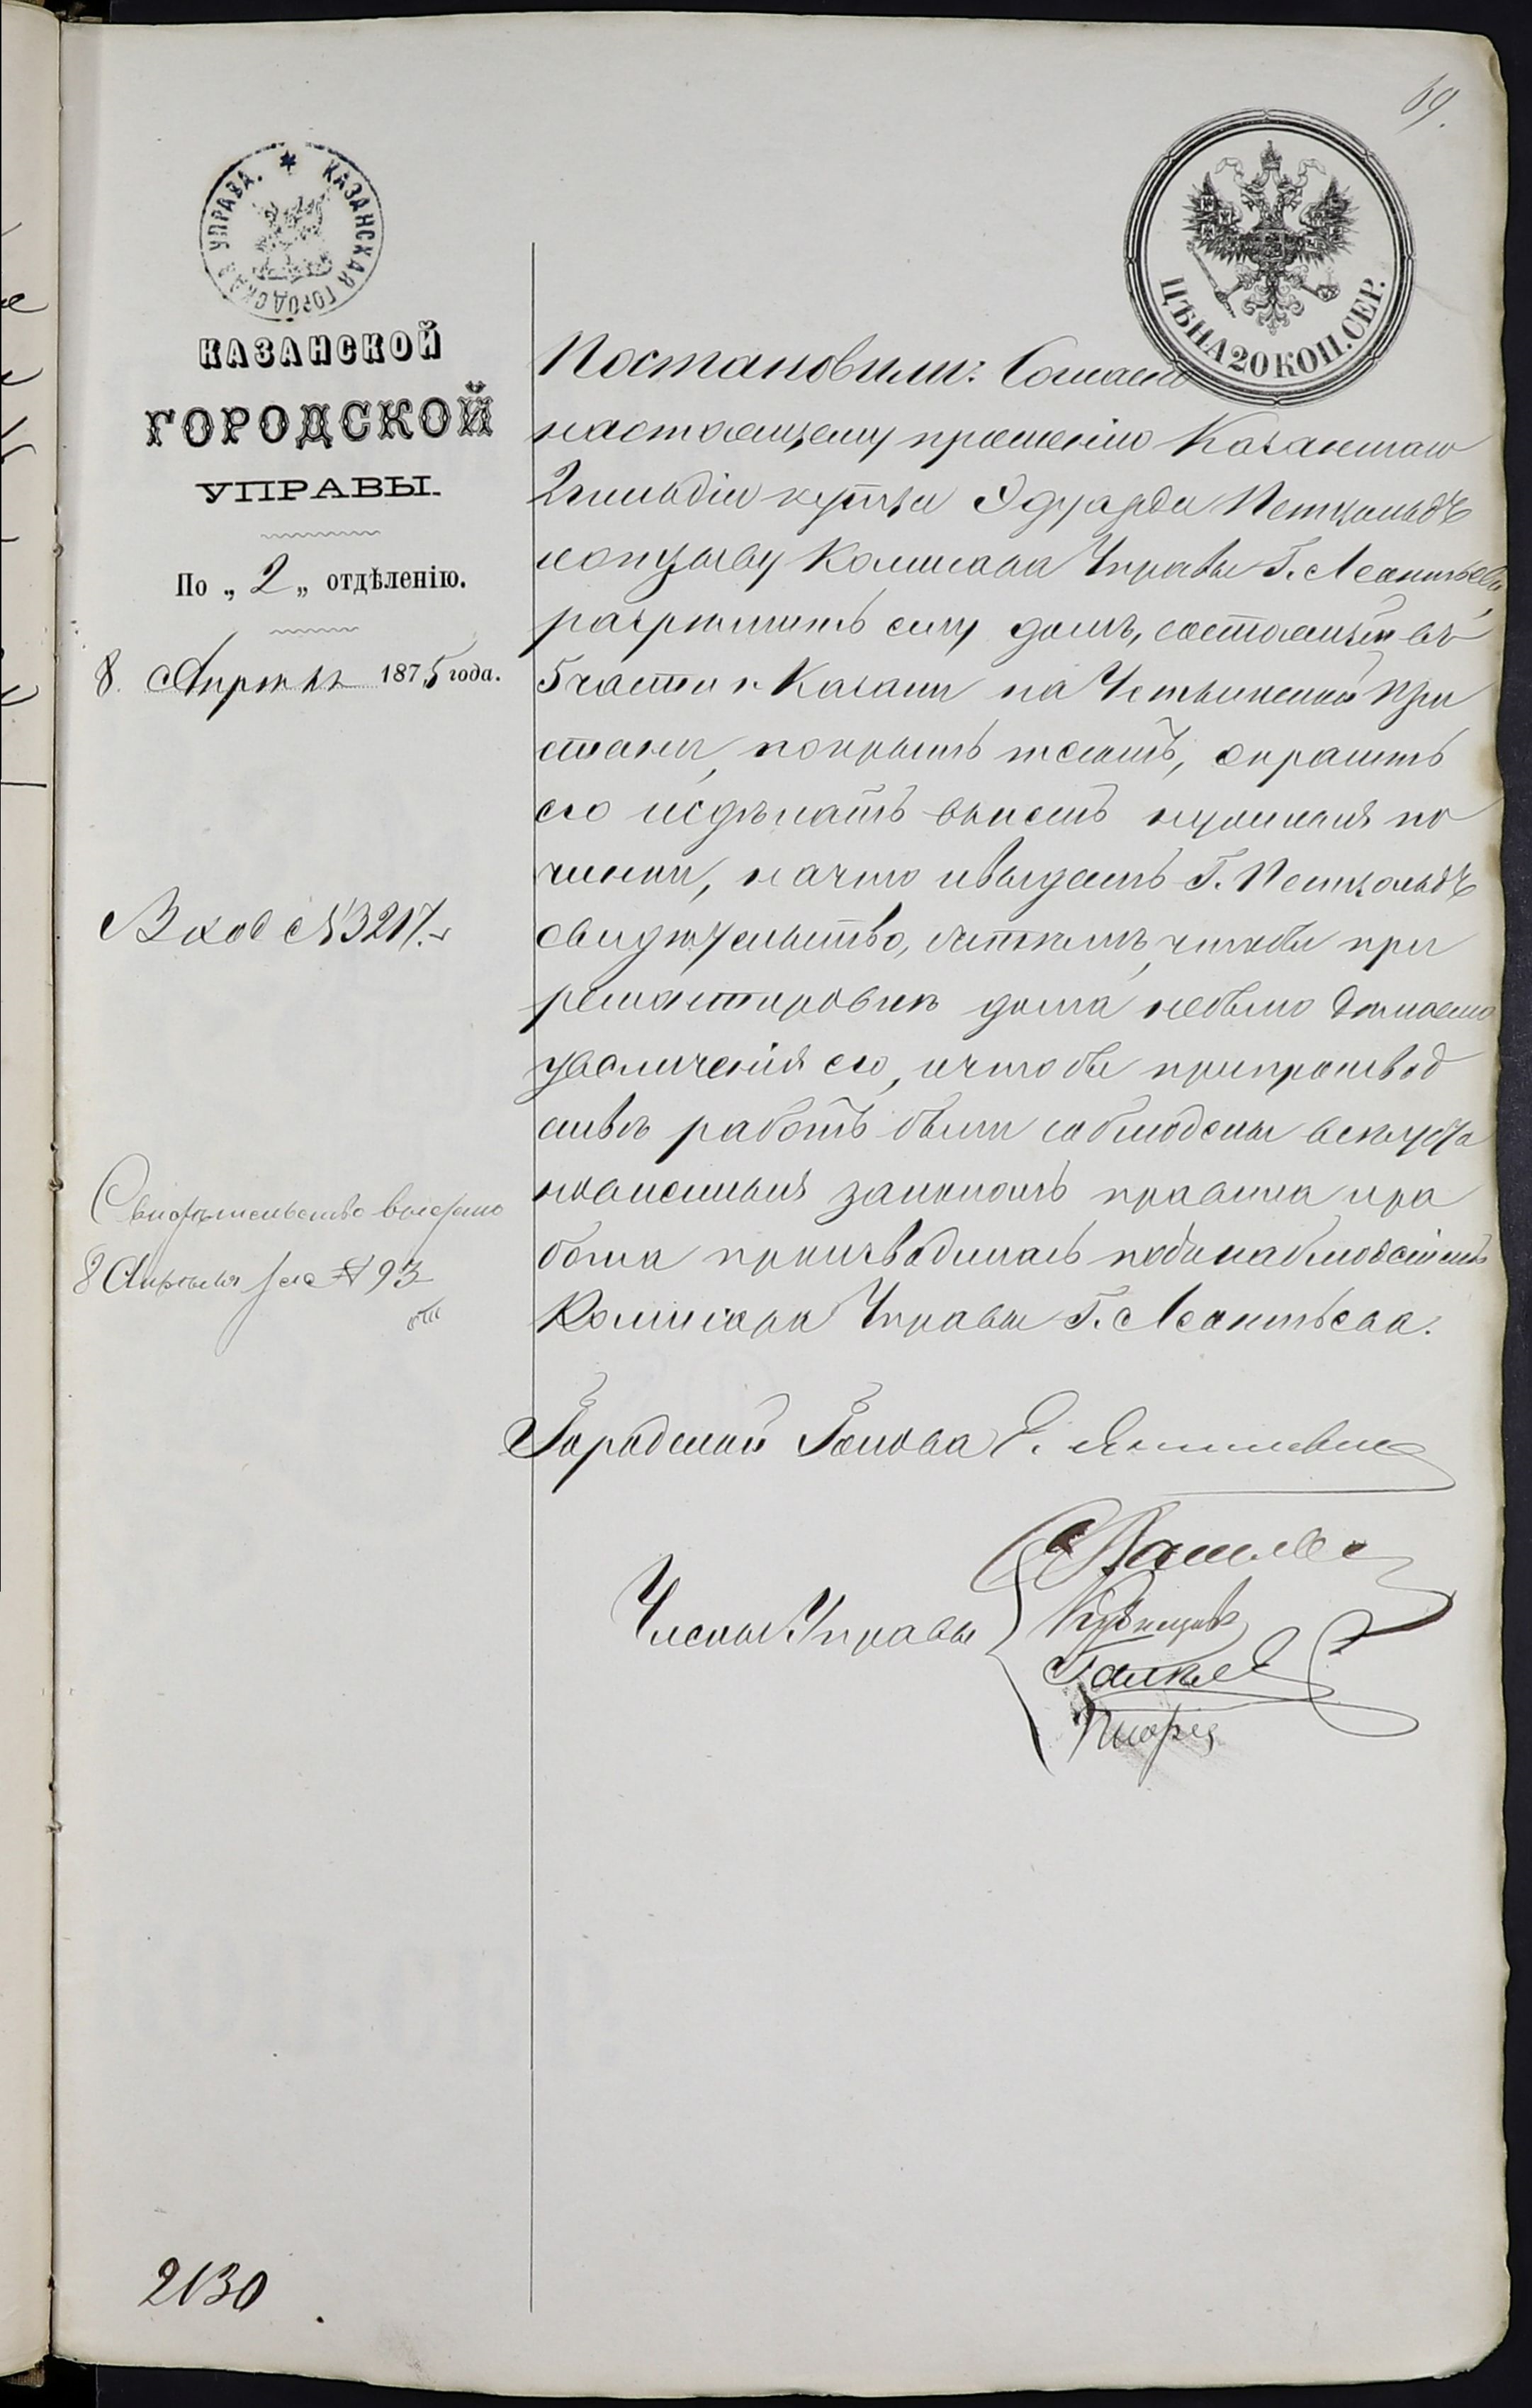 69.
КАЗАНСКАЯ ГОРОДСКАЯ УПРАВА.
ЦѢНА 20 КОП. СЕР.
КАЗАНСКОЙ
ГОРОДСКОЙ
УПРАВЫ.
По „ 2 „ отдѣленію.
8. Апрѣля 1875 года.
Вход № 3217.
Свидѣтельство выдано
8 Апрѣля за № 93
Постановили: Согласно
настоящему прошенію Казанскаго
2 гильдіи купца Эдуарда Петцольдъ
и отзыву Комисара Управы Г. Леонтьева,
разрѣшить ему домъ, состоящій въ
5 части г. Казани на Устьинской при
стани, покрыть тесомъ, окрасить
его и сдѣлать въ немъ нужныя по
чинки, на что и выдать Г. Петцольдъ
свидѣтельство, съ тѣмъ, чтобы при
ремонтировкѣ дома не было допущено
увеличенія его, и чтобы при производ
ствѣ работъ были соблюдены всѣ уста
новленныя закономъ правила и ра
бота производилась подъ наблюденіемъ
Комисара Управы Г. Леонтьева.
Городской Голова Е.
Члены Управы
Кузнецовъ
2130